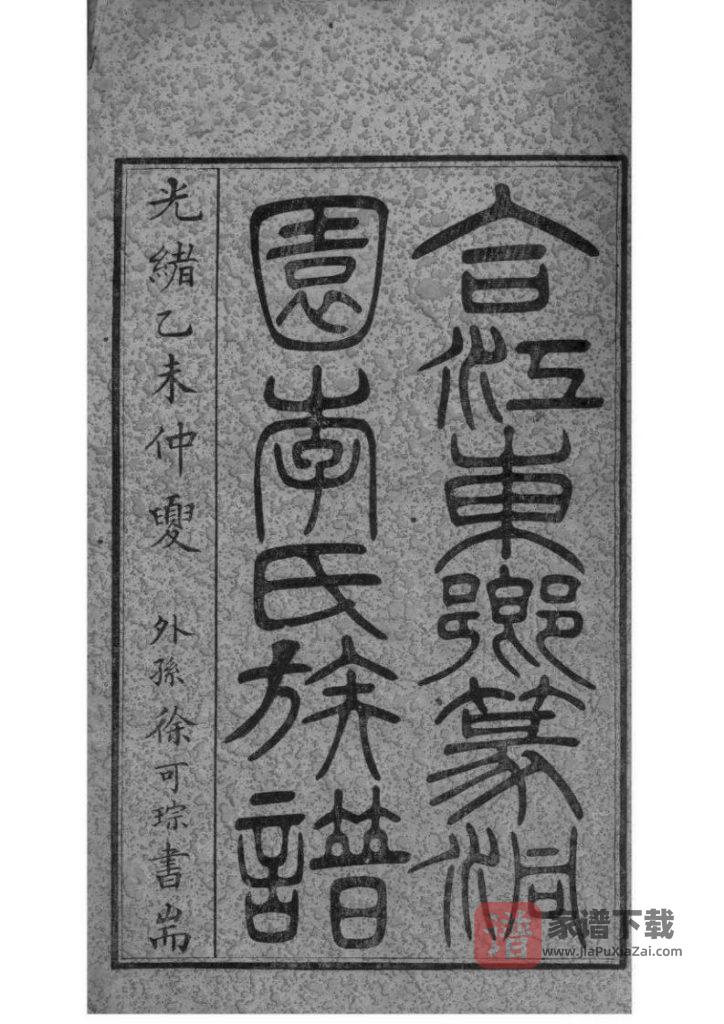 合江東鄉蒙洞
園李氏族譜
光緒乙未仲夏 外孫徐可琮書耑
譜
家谱下载
www.JiaPuXiaZai.com